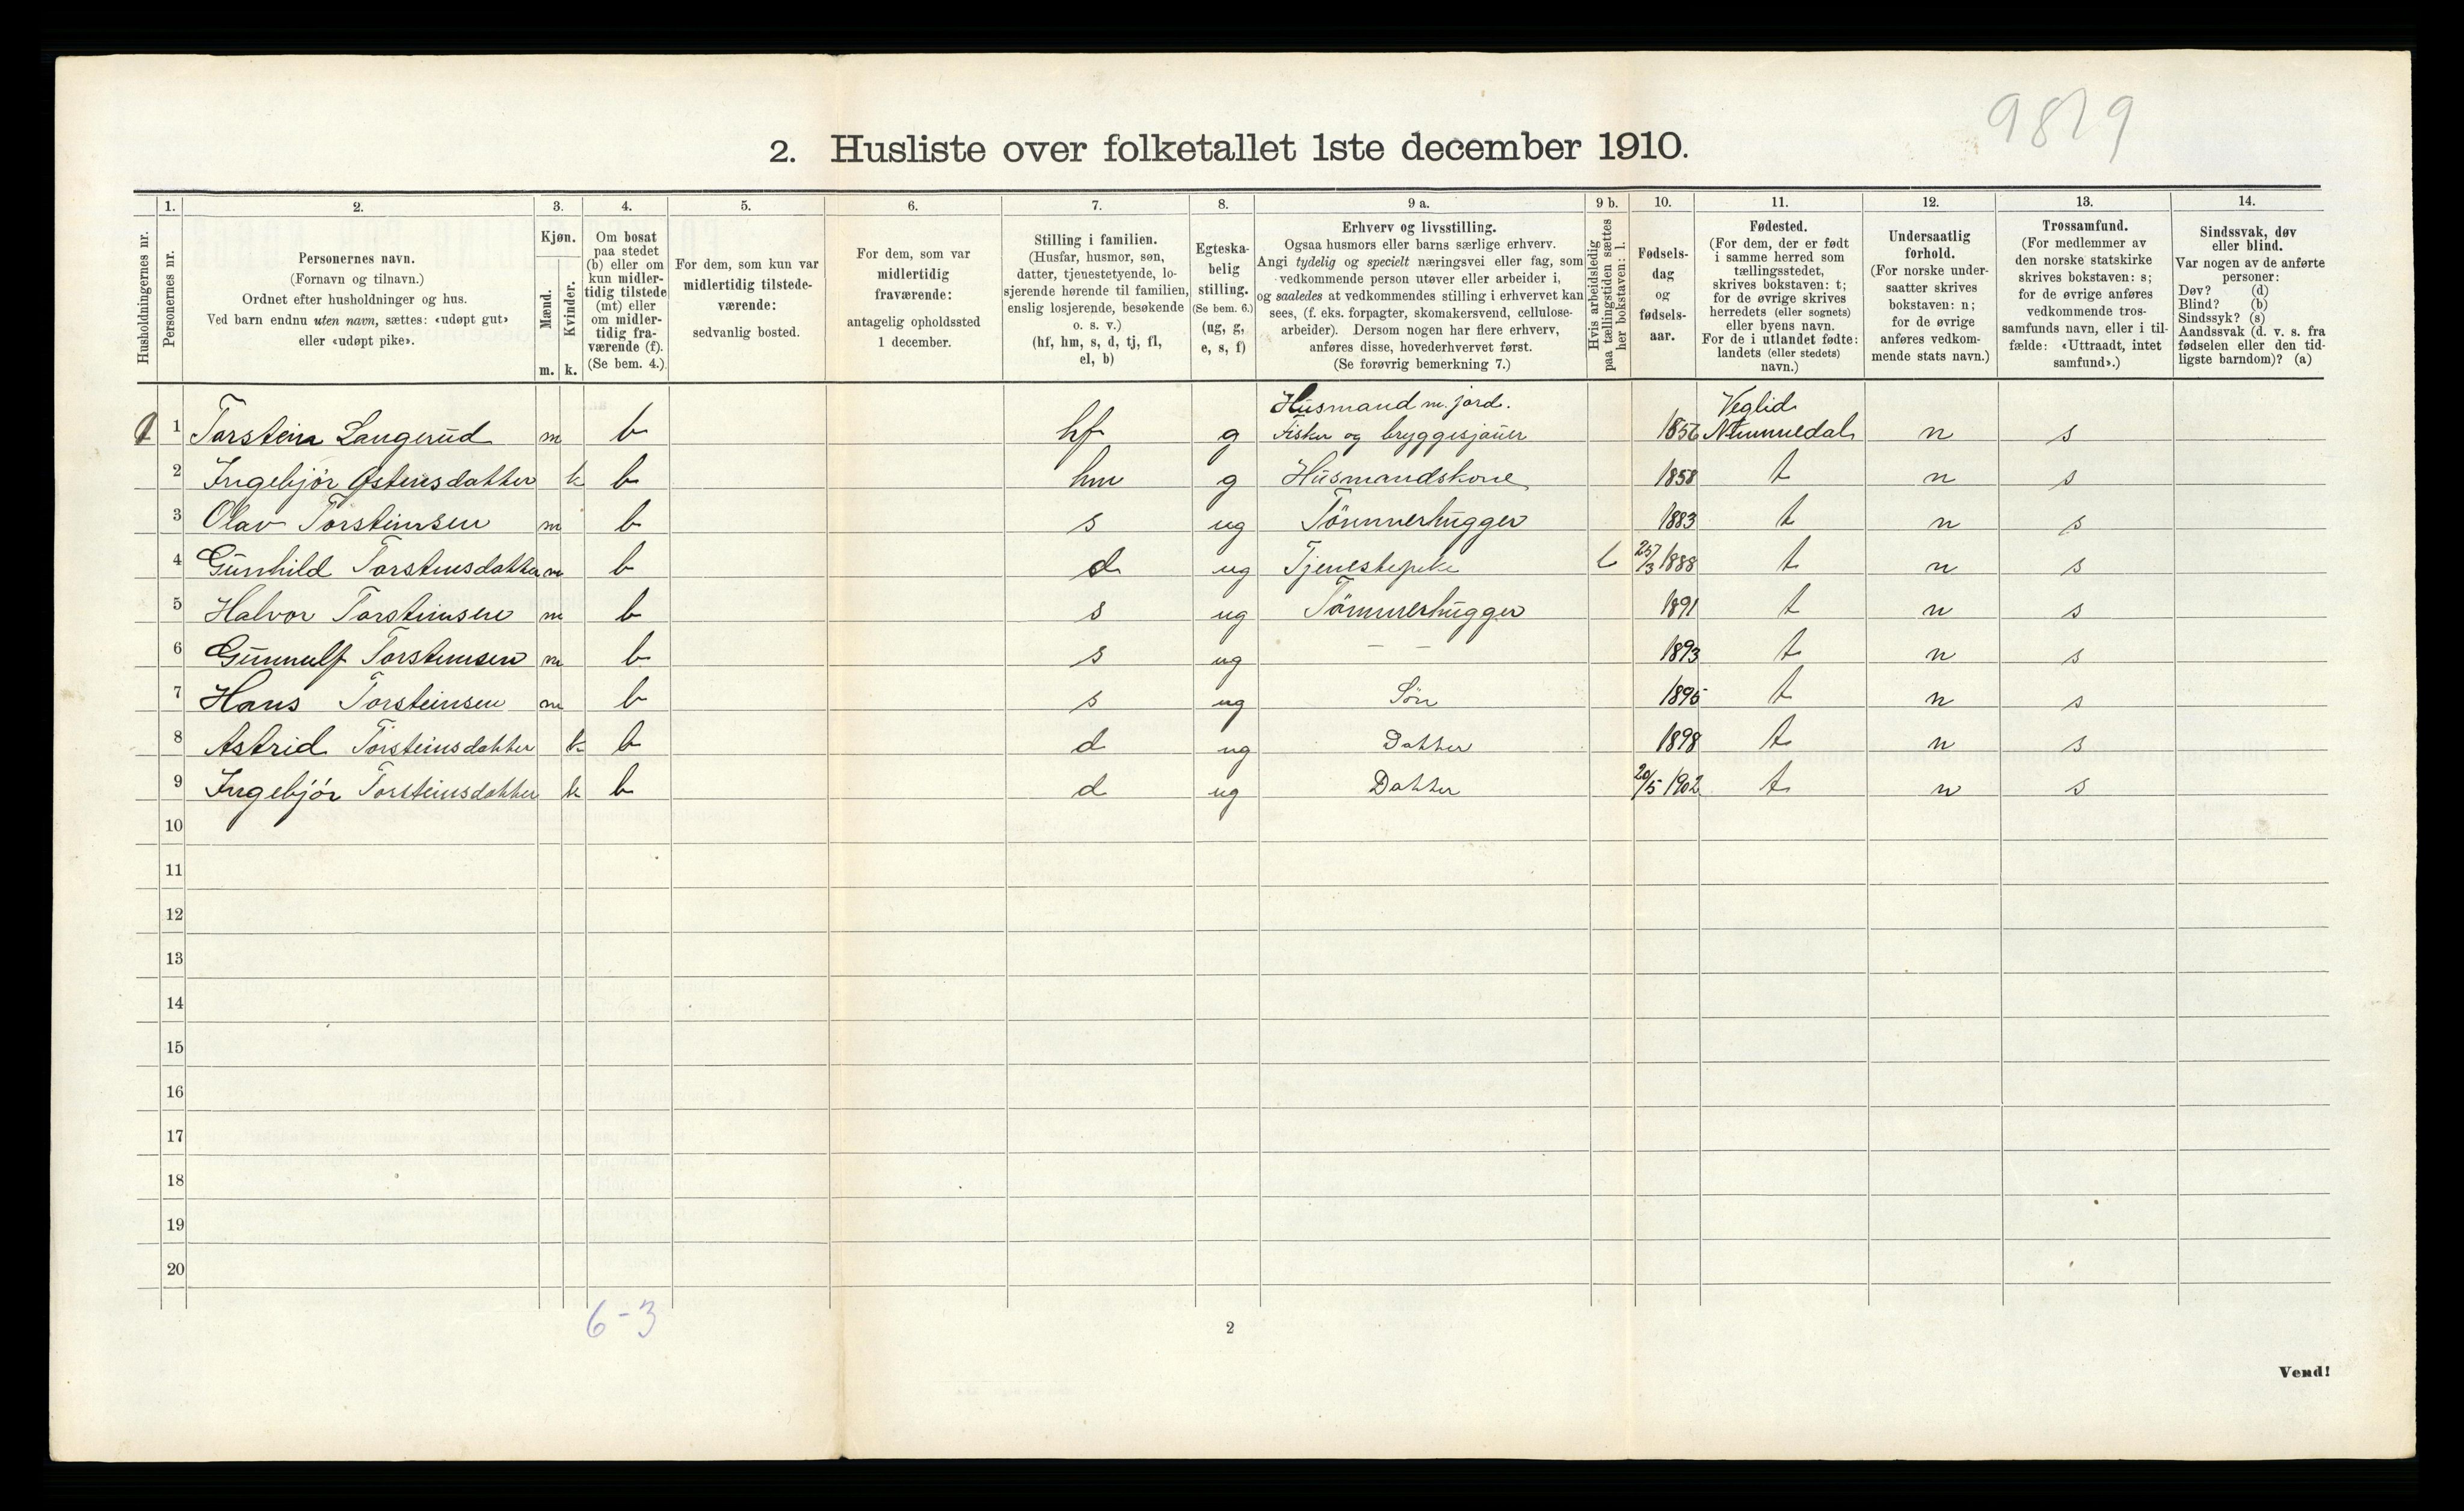 9879
2. Husliste over folketallet 1ste december 1910.
1. 2. 3. 4. 5. 6. 7. 8. 9 a. 9 b. 10. 11. 12. 13. 14.
Husholdningernes nr.
Personernes nr.
Personernes navn.
(Fornavn og tilnavn.)
Ordnet efter husholdninger og hus.
Ved barn endnu uten navn, sættes: «udøpt gut»
eller «udøpt pike».
Kjøn.
Mænd.
Kvinder.
m. k.
Om bosat
paa stedet
(b) eller om
kun midler-
tidig tilstede
(mt) eller
om midler-
tidig fra-
værende (f).
(Se bem. 4.)
For dem, som kun var
midlertidig tilstede-
værende:
sedvanlig bosted.
For dem, som var
midlertidig
fraværende:
antagelig opholdssted
1 december.
Stilling i familien.
(Husfar, husmor, søn,
datter, tjenestetyende, lo-
sjerende hørende til familien,
enslig losjerende, besøkende
o. s. v.)
(hf, hm, s, d, tj, fl,
el, b)
Egteska-
belig
stilling.
(Se bem. 6.)
(ug, g,
e, s, f)
Erhverv og livsstilling.
Ogsaa husmors eller barns særlige erhverv.
Angi tydelig og specielt næringsvei eller fag, som
vedkommende person utøver eller arbeider i,
og saaledes at vedkommendes stilling i erhvervet kan
sees, (f. eks. forpagter, skomakersvend, cellulose-
arbeider). Dersom nogen har flere erhverv,
anføres disse, hovederhvervet først.
(Se forøvrig bemerkning 7.)
Hvis arbeidsledig
paa tællingstiden sættes
her bokstaven: l.
Fødsels-
dag
og
fødsels-
aar.
Fødested.
(For dem, der er født
i samme herred som
tællingsstedet,
skrives bokstaven: t;
for de øvrige skrives
herredets (eller sognets)
eller byens navn.
For de i utlandet fødte:
landets (eller stedets)
navn.)
Undersaatlig
forhold.
(For norske under-
saatter skrives
bokstaven: n;
for de øvrige
anføres vedkom-
mende stats navn.)
Trossamfund.
(For medlemmer av
den norske statskirke
skrives bokstaven: s;
for de øvrige anføres
vedkommende tros-
samfunds navn, eller i til-
fælde: «Uttraadt, intet
samfund».)
Sindssvak, døv
eller blind.
Var nogen av de anførte
personer:
Døv? (d)
Blind? (b)
Sindssyk? (s)
Aandssvak (d. v. s. fra
fødselen eller den tid-
ligste barndom)? (a)
Husmand m. jord. Veglid
1 1 Torstein Langerud m b hf g Fisker og bryggesjauer 1856 Nummedal n s
2 Ingebjør Østensdatter k b hm g Husmandskone 1858 t n s
3 Olav Torsteinsen m b s ug Tømmerhugger 1883 t n s
4 Gunhild Torsteinsdatter m b d ug Tjenestepike l 25/3 1888 t n s
5 Halvor Torsteinsen m b s ug Tømmerhugger 1891 t n s
6 Gunnulf Torsteinsen m b s ug — — 1893 t n s
7 Hans Torsteinsen m b s ug Søn 1895 t n s
8 Astrid Torsteinsdatter k b d ug Datter 1898 t n s
9 Ingebjør Torsteinsdatter k b d ug Datter 20/5 1902 t n s
10
11
12
13
14
15
16
17
18
19
20
6-3
2
Vend!